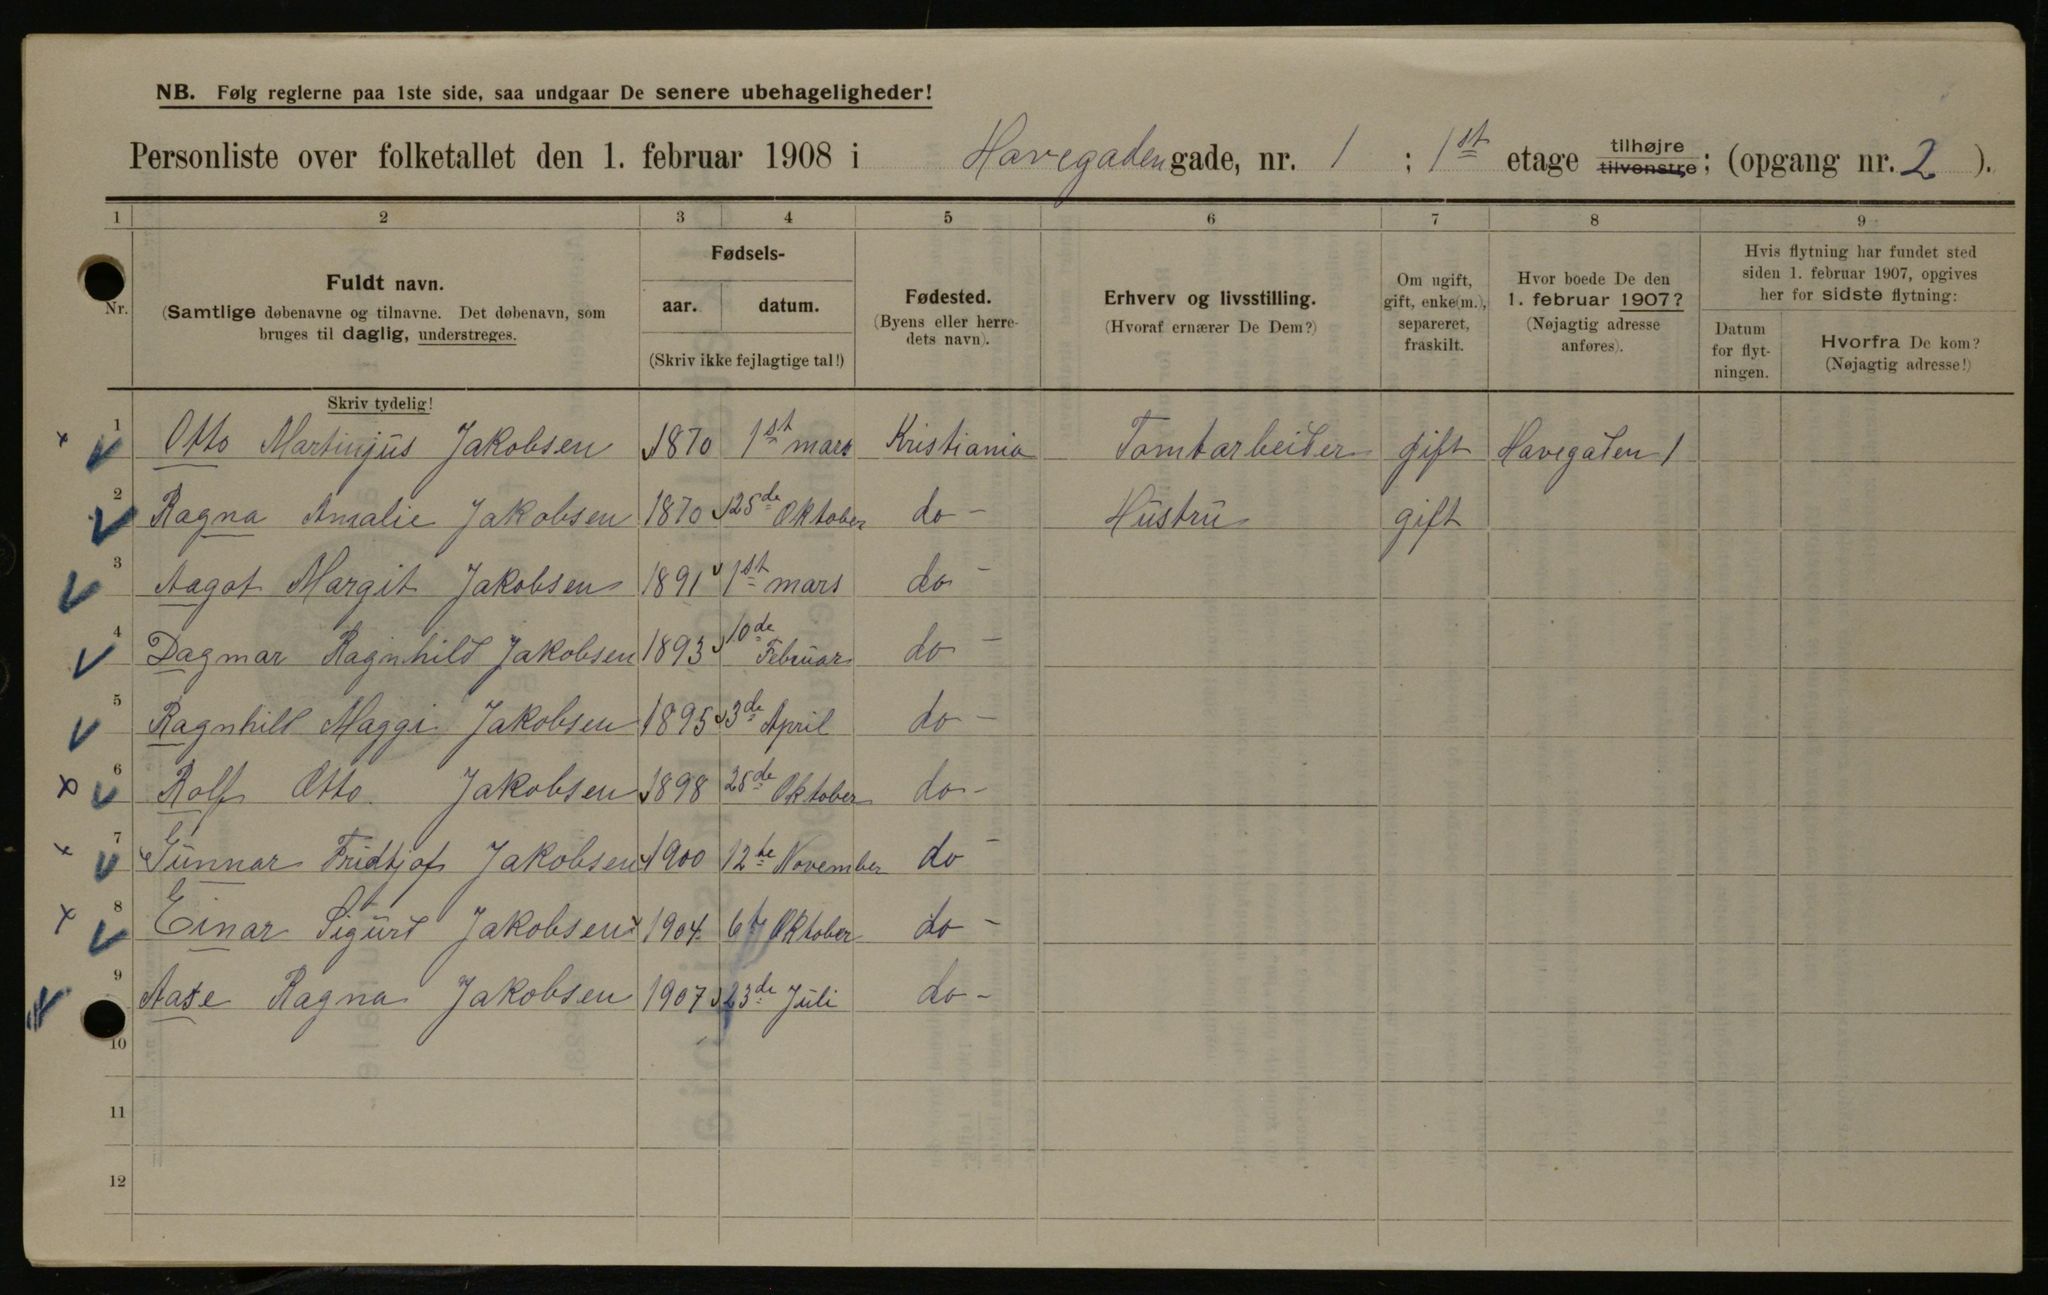 NB. Følg reglerne paa 1ste side, saa undgaar De senere ubehageligheder!
Personliste over folketallet den 1. februar 1908 i Havegaden gade, nr. 1 ; 1st etage tilhøjre tilvenstre; (opgang nr. 2 ).
1 2 3 4 5 6 7 8 9
Nr.
Fuldt navn.
(Samtlige døbenavne og tilnavne. Det døbenavn, som
bruges til daglig, understreges.
Skriv tydelig!
Fødsels-
aar. datum.
(Skriv ikke fejlagtige tal!)
Fødested.
(Byens eller herre-
dets navn).
Erhverv og livsstilling.
(Hvoraf ernærer De Dem?)
Om ugift,
gift, enke(m.),
separeret,
fraskilt.
Hvor boede De den
1. februar 1907?
(Nøjagtig adresse
anføres).
Hvis flytning har fundet sted
siden 1. februar 1907, opgives
her for sidste flytning:
Datum
for flyt-
ningen.
Hvorfra De kom?
(Nøjagtig adresse!)
1 Otto Martinius Jakobsen 1870 1st mars Kristiania Tomtarbeider gift Havegaden 1
2 Ragna Amalie Jakobsen 1870 25de Oktober do - Hustru gift
3 Aagot Margit Jakobsen 1891 1st mars do -
4 Dagmar Ragnhild Jakobsen 1893 10de Februar do -
5 Ragnhild Maggi Jakobsen 1895 3de April do -
6 Rolf Otto Jakobsen 1898 25de Oktober do -
7 Gunnar Fridtjof Jakobsen 1900 12te November do -
8 Einar Sigurd Jakobsen 1904 6 Oktober do -
9 Aase Ragna Jakobsen 1907 23de Juli do -
10
11
12